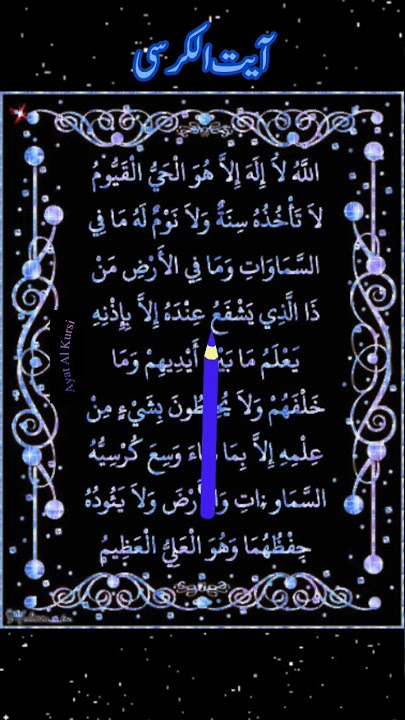 آیت الکرسی
اللَّهُ لاَ إِلَهَ إِلاَّ هُوَ الْحَيُّ الْقَيُّومُ
لاَ تَأْخُذُهُ سِنَةٌ وَلاَ نَوْمٌ لَهُ مَا فِي
السَّمَاوَاتِ وَمَا فِي الأَرْضِ مَنْ
ذَا الَّذِي يَشْفَعُ عِنْدَهُ إِلاَّ بِإِذْنِهِ
يَعْلَمُ مَا أَيْدِيهِمْ وَمَا
خَلْفَهُمْ وَلاَ بِشَيْءٍ مِنْ
عِلْمِهِ إِلاَّ بِمَا وَسِعَ كُرْسِيُّهُ
السَّمَاوَاتِ وَلاَ يَئُودُهُ
حِفْظُهُمَا وَهُوَ الْعَلِيُّ الْعَظِيمُ
Ayat Al Kursi